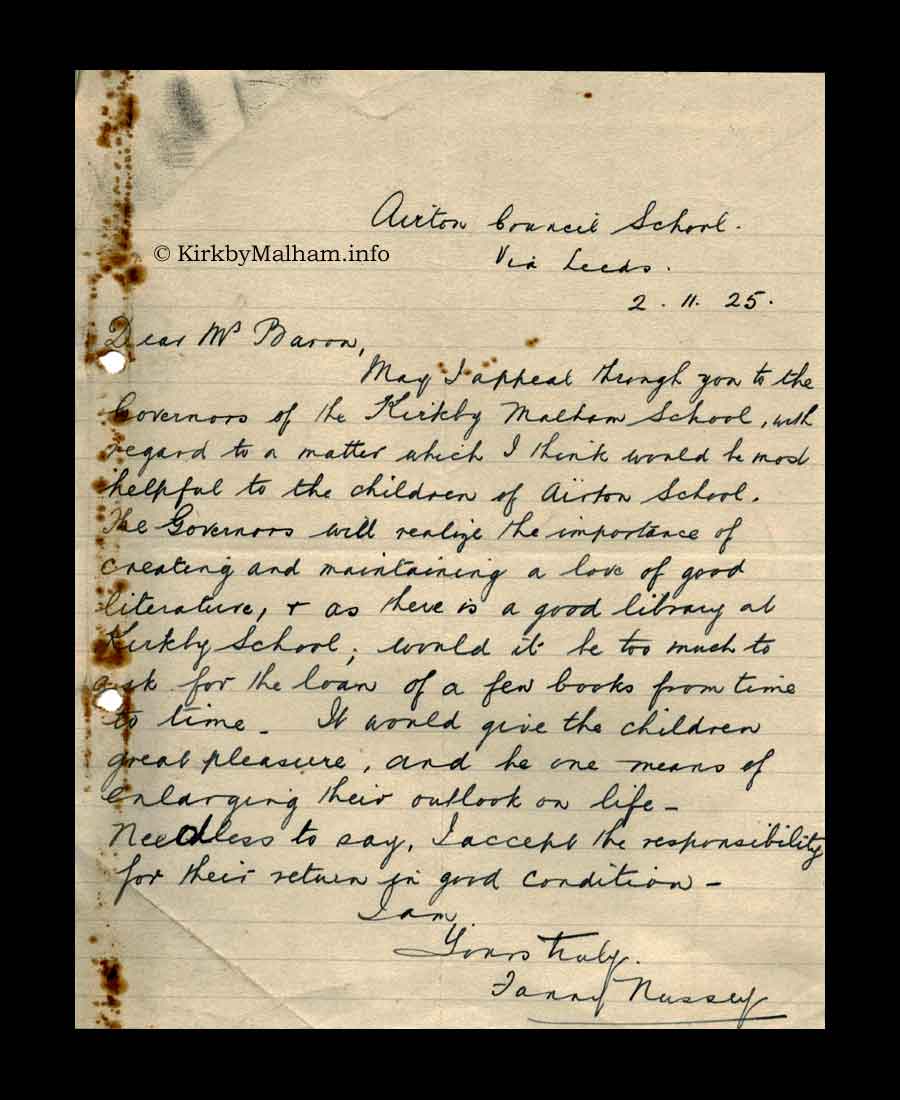 Airton Council School.
© KirkbyMalham.info
Via Leeds.
2. 11. 25.
Dear Mrs Baron,
May I appeal through you to the
Governors of the Kirkby Malham School, with
regard to a matter which I think would be most
helpful to the children of Airton School.
The Governors will realize the importance of
creating and maintaining a love of good
literature, + as there is a good library at
Kirkby School; would it be too much to
ask for the loan of a few books from time
to time. It would give the children
great pleasure, and be one means of
enlarging their outlook on life –
Needless to say, I accept the responsibility
for their return in good condition –
I am,
Yours truly.
Fanny Nussey